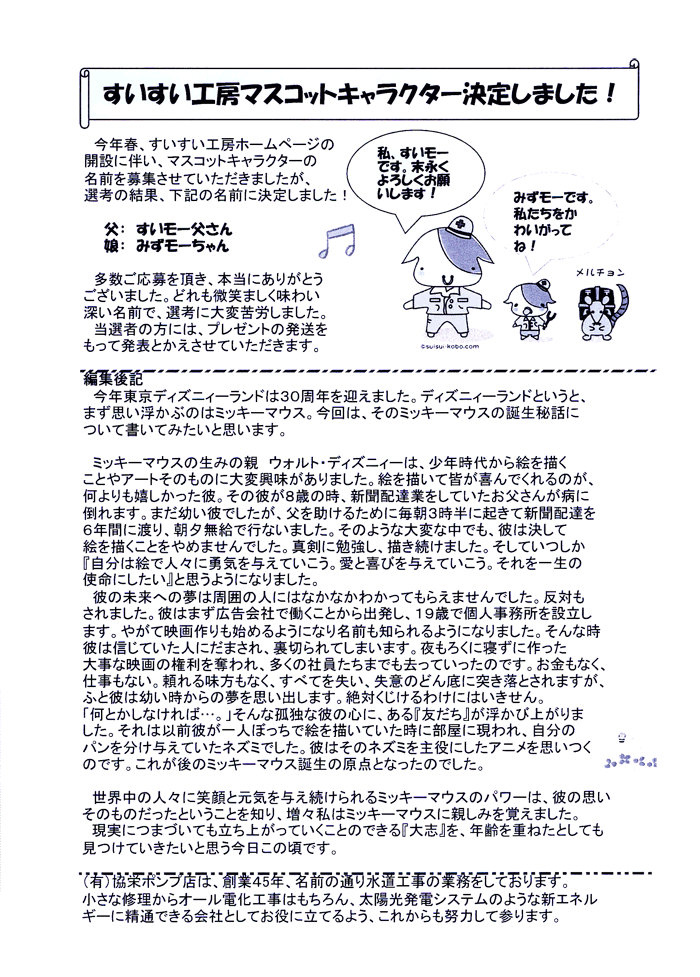 すいすい工房マスコットキャラクター決定しました！
今年春、すいすい工房ホームページの
開設に伴い、マスコットキャラクターの
名前を募集させていただきましたが、
選考の結果、下記の名前に決定しました！
父： すいモー父さん
娘： みずモーちゃん
多数ご応募を頂き、本当にありがとう
ございました。どれも微笑ましく味わい
深い名前で、選考に大変苦労しました。
当選者の方には、プレゼントの発送を
もって発表とかえさせていただきます。
私、すいモー
です。末永く
よろしくお願
いします！
みずモーです。
私たちをか
わいがって
ね！
メルチョン
©suisui-kobo.com
編集後記
今年東京ディズニィーランドは３０周年を迎えました。ディズニィーランドというと、
まず思い浮かぶのはミッキーマウス。今回は、そのミッキーマウスの誕生秘話に
ついて書いてみたいと思います。
ミッキーマウスの生みの親　ウォルト・ディズニィーは、少年時代から絵を描く
ことやアートそのものに大変興味がありました。絵を描いて皆が喜んでくれるのが、
何よりも嬉しかった彼。その彼が８歳の時、新聞配達業をしていたお父さんが病に
倒れます。まだ幼い彼でしたが、父を助けるために毎朝３時半に起きて新聞配達を
６年間に渡り、朝夕無給で行ないました。そのような大変な中でも、彼は決して
絵を描くことをやめませんでした。真剣に勉強し、描き続けました。そしていつしか
『自分は絵で人々に勇気を与えていこう。愛と喜びを与えていこう。それを一生の
使命にしたい』と思うようになりました。
彼の未来への夢は周囲の人にはなかなかわかってもらえませんでした。反対も
されました。彼はまず広告会社で働くことから出発し、１９歳で個人事務所を設立し
ます。やがて映画作りも始めるようになり名前も知られるようになりました。そんな時
彼は信じていた人にだまされ、裏切られてしまいます。夜もろくに寝ずに作った
大事な映画の権利を奪われ、多くの社員たちまでも去っていったのです。お金もなく、
仕事もない。頼れる味方もなく、すべてを失い、失意のどん底に突き落とされますが、
ふと彼は幼い時からの夢を思い出します。絶対くじけるわけにはいきせん。
「何とかしなければ…。」そんな孤独な彼の心に、ある『友だち』が浮かび上がりま
した。それは以前彼が一人ぼっちで絵を描いていた時に部屋に現われ、自分の
パンを分け与えていたネズミでした。彼はそのネズミを主役にしたアニメを思いつく
のです。これが後のミッキーマウス誕生の原点となったのでした。
世界中の人々に笑顔と元気を与え続けられるミッキーマウスのパワーは、彼の思い
そのものだったということを知り、増々私はミッキーマウスに親しみを覚えました。
現実につまづいても立ち上がっていくことのできる『大志』を、年齢を重ねたとしても
見つけていきたいと思う今日この頃です。
（有）協栄ポンプ店は、創業４５年、名前の通り水道工事の業務をしております。
小さな修理からオール電化工事はもちろん、太陽光発電システムのような新エネル
ギーに精通できる会社としてお役に立てるよう、これからも努力して参ります。